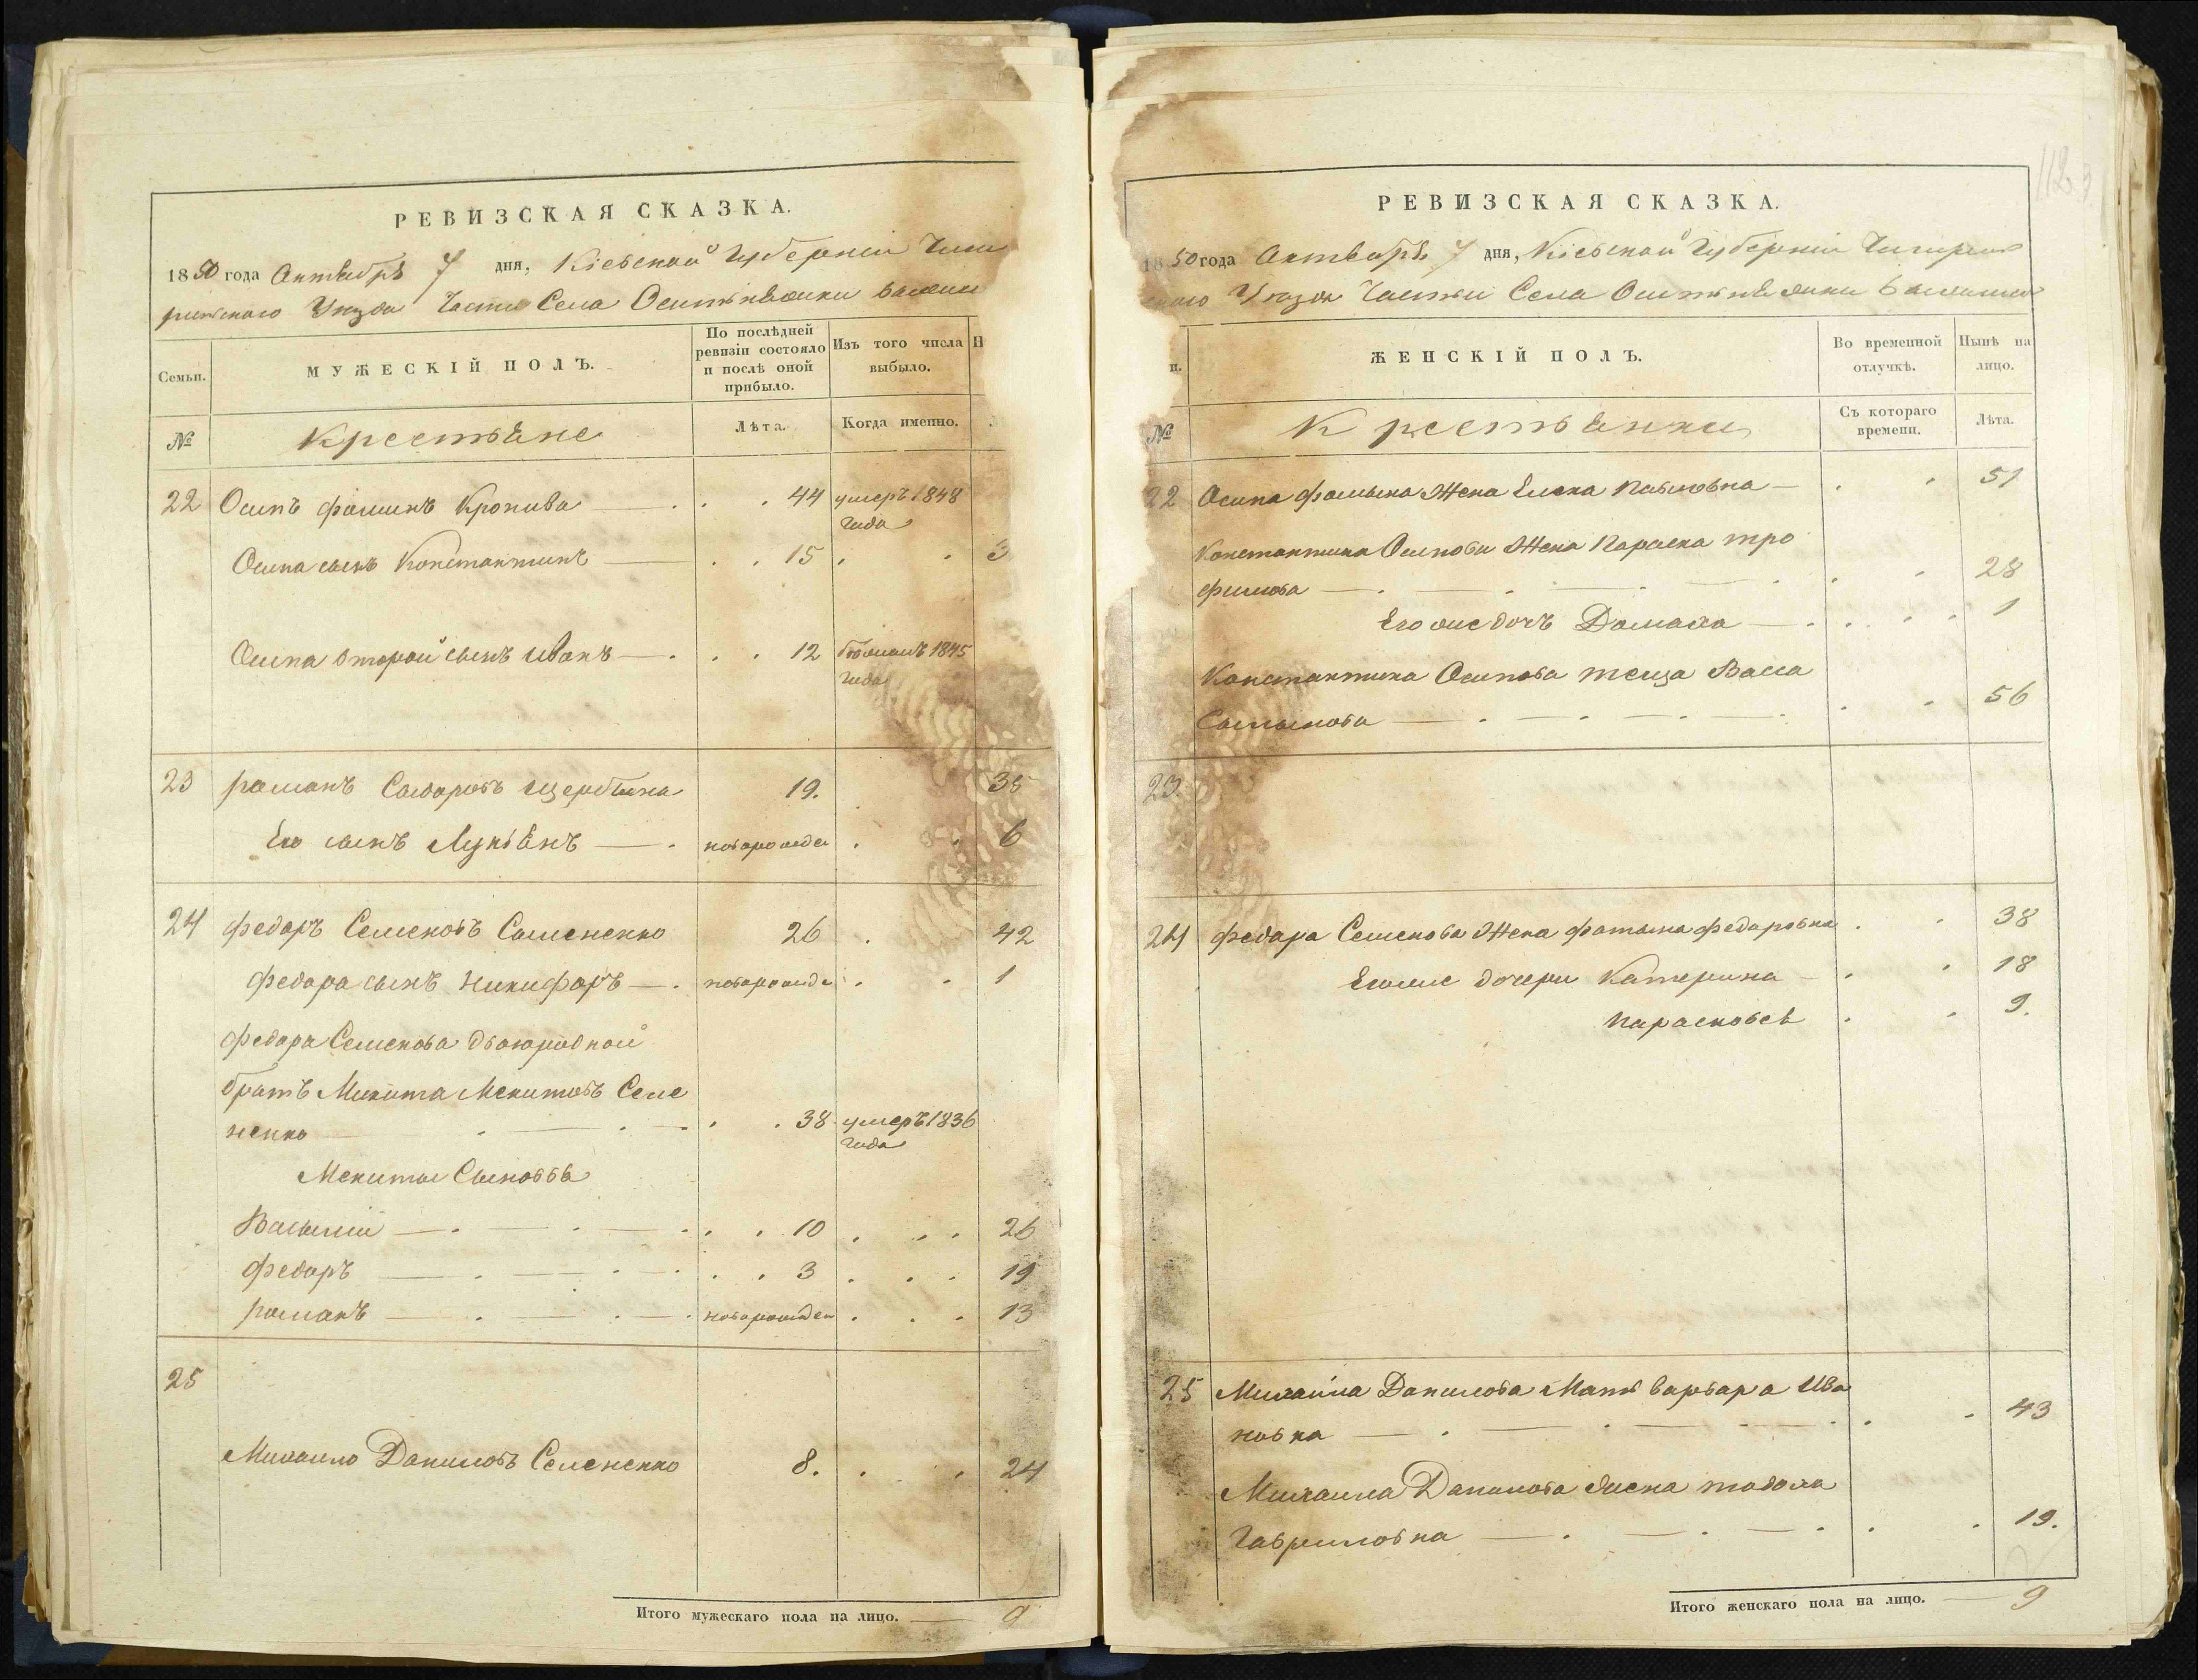 РЕВИЗСКАЯ СКАЗКА.
1850 года Октября 7 дня, Кіевской Губерніи Чиги
ринскаго Уезда Части Села Оситняжки
Семьи.
МУЖЕСКІЙ ПОЛЪ.
По послѣдней ревизіи состояло и послѣ оной прибыло.
Изъ того числа выбыло.
Н
№
Крестьяне
Лѣта.
Когда именно.
22 Осипъ фоминъ Кропива 44 умеръ 1848 года
Осипа сынъ Константинъ 15 3
Осипа второй сынъ Иванъ 12 1845 года
23 романъ Сидоровъ щербина 19. 35
Его сынъ Лукьянъ новорожден 6
24 федоръ Семеновъ Семененко 26 42
федора сынъ никифоръ новорожде 1
федора Семенова двоюродной
братъ Микита Мекитовъ Семе
ненко 38 умеръ 1836 года
Мекиты Сыновья
Василій 10 26
федоръ 3 19
романъ новорожден 13
25
Михаило Даниловъ Семененко 8. 24
Итого мужескаго пола на лицо. 9
РЕВИЗСКАЯ СКАЗКА.
1850 года Октября 7 дня, Кіевской Губерніи Чигирин
скаго Уезда Части Села Оситняжки
и.
ЖЕНСКІЙ ПОЛЪ.
Во временной отлучкѣ.
Нынѣ на лицо.
№
Крестьянки
Съ котораго времени.
Лѣта.
22 Осипа фомина Жена Елена Павловна 51
Константина Осипова Жена Параска тро
фимова 28
Его же дочь Домаха 1
Константина Осипова теща Васса
56
23.
24 федора Семенова Жена фатына федоровна 38
Егоже дочери Катерина 18
Парасковея 9.
25 Михаила Данилова Мать варвара Ива
новна 43
Михаила Данилова жена тодоха
Гавриловна 19.
Итого женскаго пола на лицо. 9